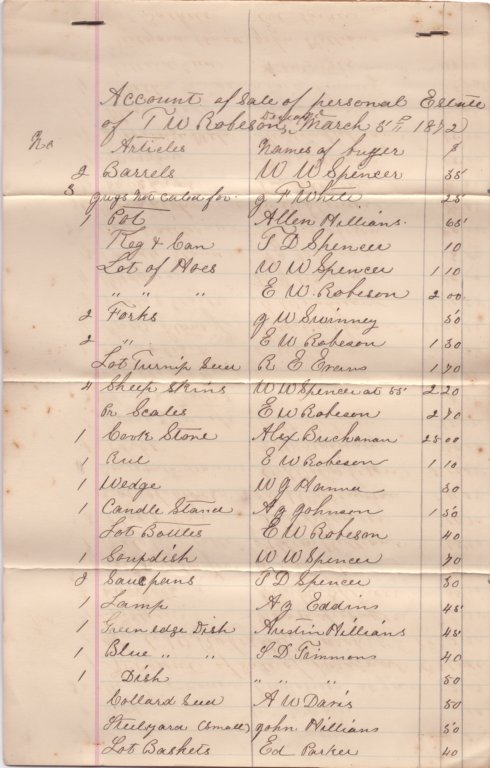 Account of Sale of personal Estate
of T W Robeson Deceased March 5th 1872
No Articles Names of buyer $
2 Barrels W W Spencer 35
3 guys not caled for g F White 25
1 Pot Allen Hillians. 65
Keg & Can T D Spencer 10
Lot of Hoes W W Spencer 1 10
" " " E W. Robeson 2 00
2 Forks g W Swinney 50
2 " E W Robeson 1 30
Lot Turnip Seed R E Evans 1 70
4 Sheep Skins W W Spencer at 55 2 20
Pr Scales E W Robeson 2 70
1 Cook Stone Alex Buchanan 25 00
1 E W Robeson 1 10
1 Wedge W g Hanna 50
1 Candle Stand A g Johnson 1 50
Lot Bottles E W Robeson 40
1 Soupdish W W Spencer 70
2 Saucepans T D Spencer 50
1 Lamp A g Eddins 45
1 Green edge Dish Austin Hillians 45
1 Blue " " S D Timmons 40
1 Dish " " " 50
Collard Seed A W Davis 50
Steelyard (Small) John Hillians 50
Lot Baskets Ed Parker 40